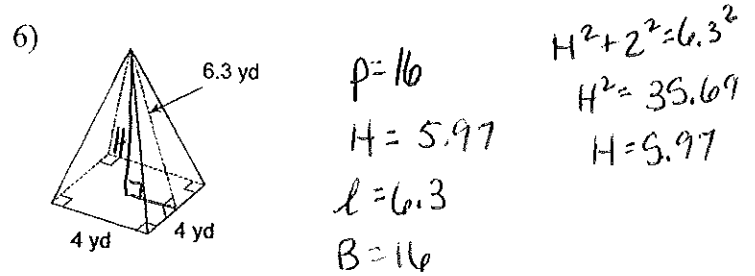 6)
6.3 yd
H
4 yd
4 yd
p=16
H = 5.97
l = 6.3
B = 16
H²+2²=6.3²
H²= 35.69
H=5.97